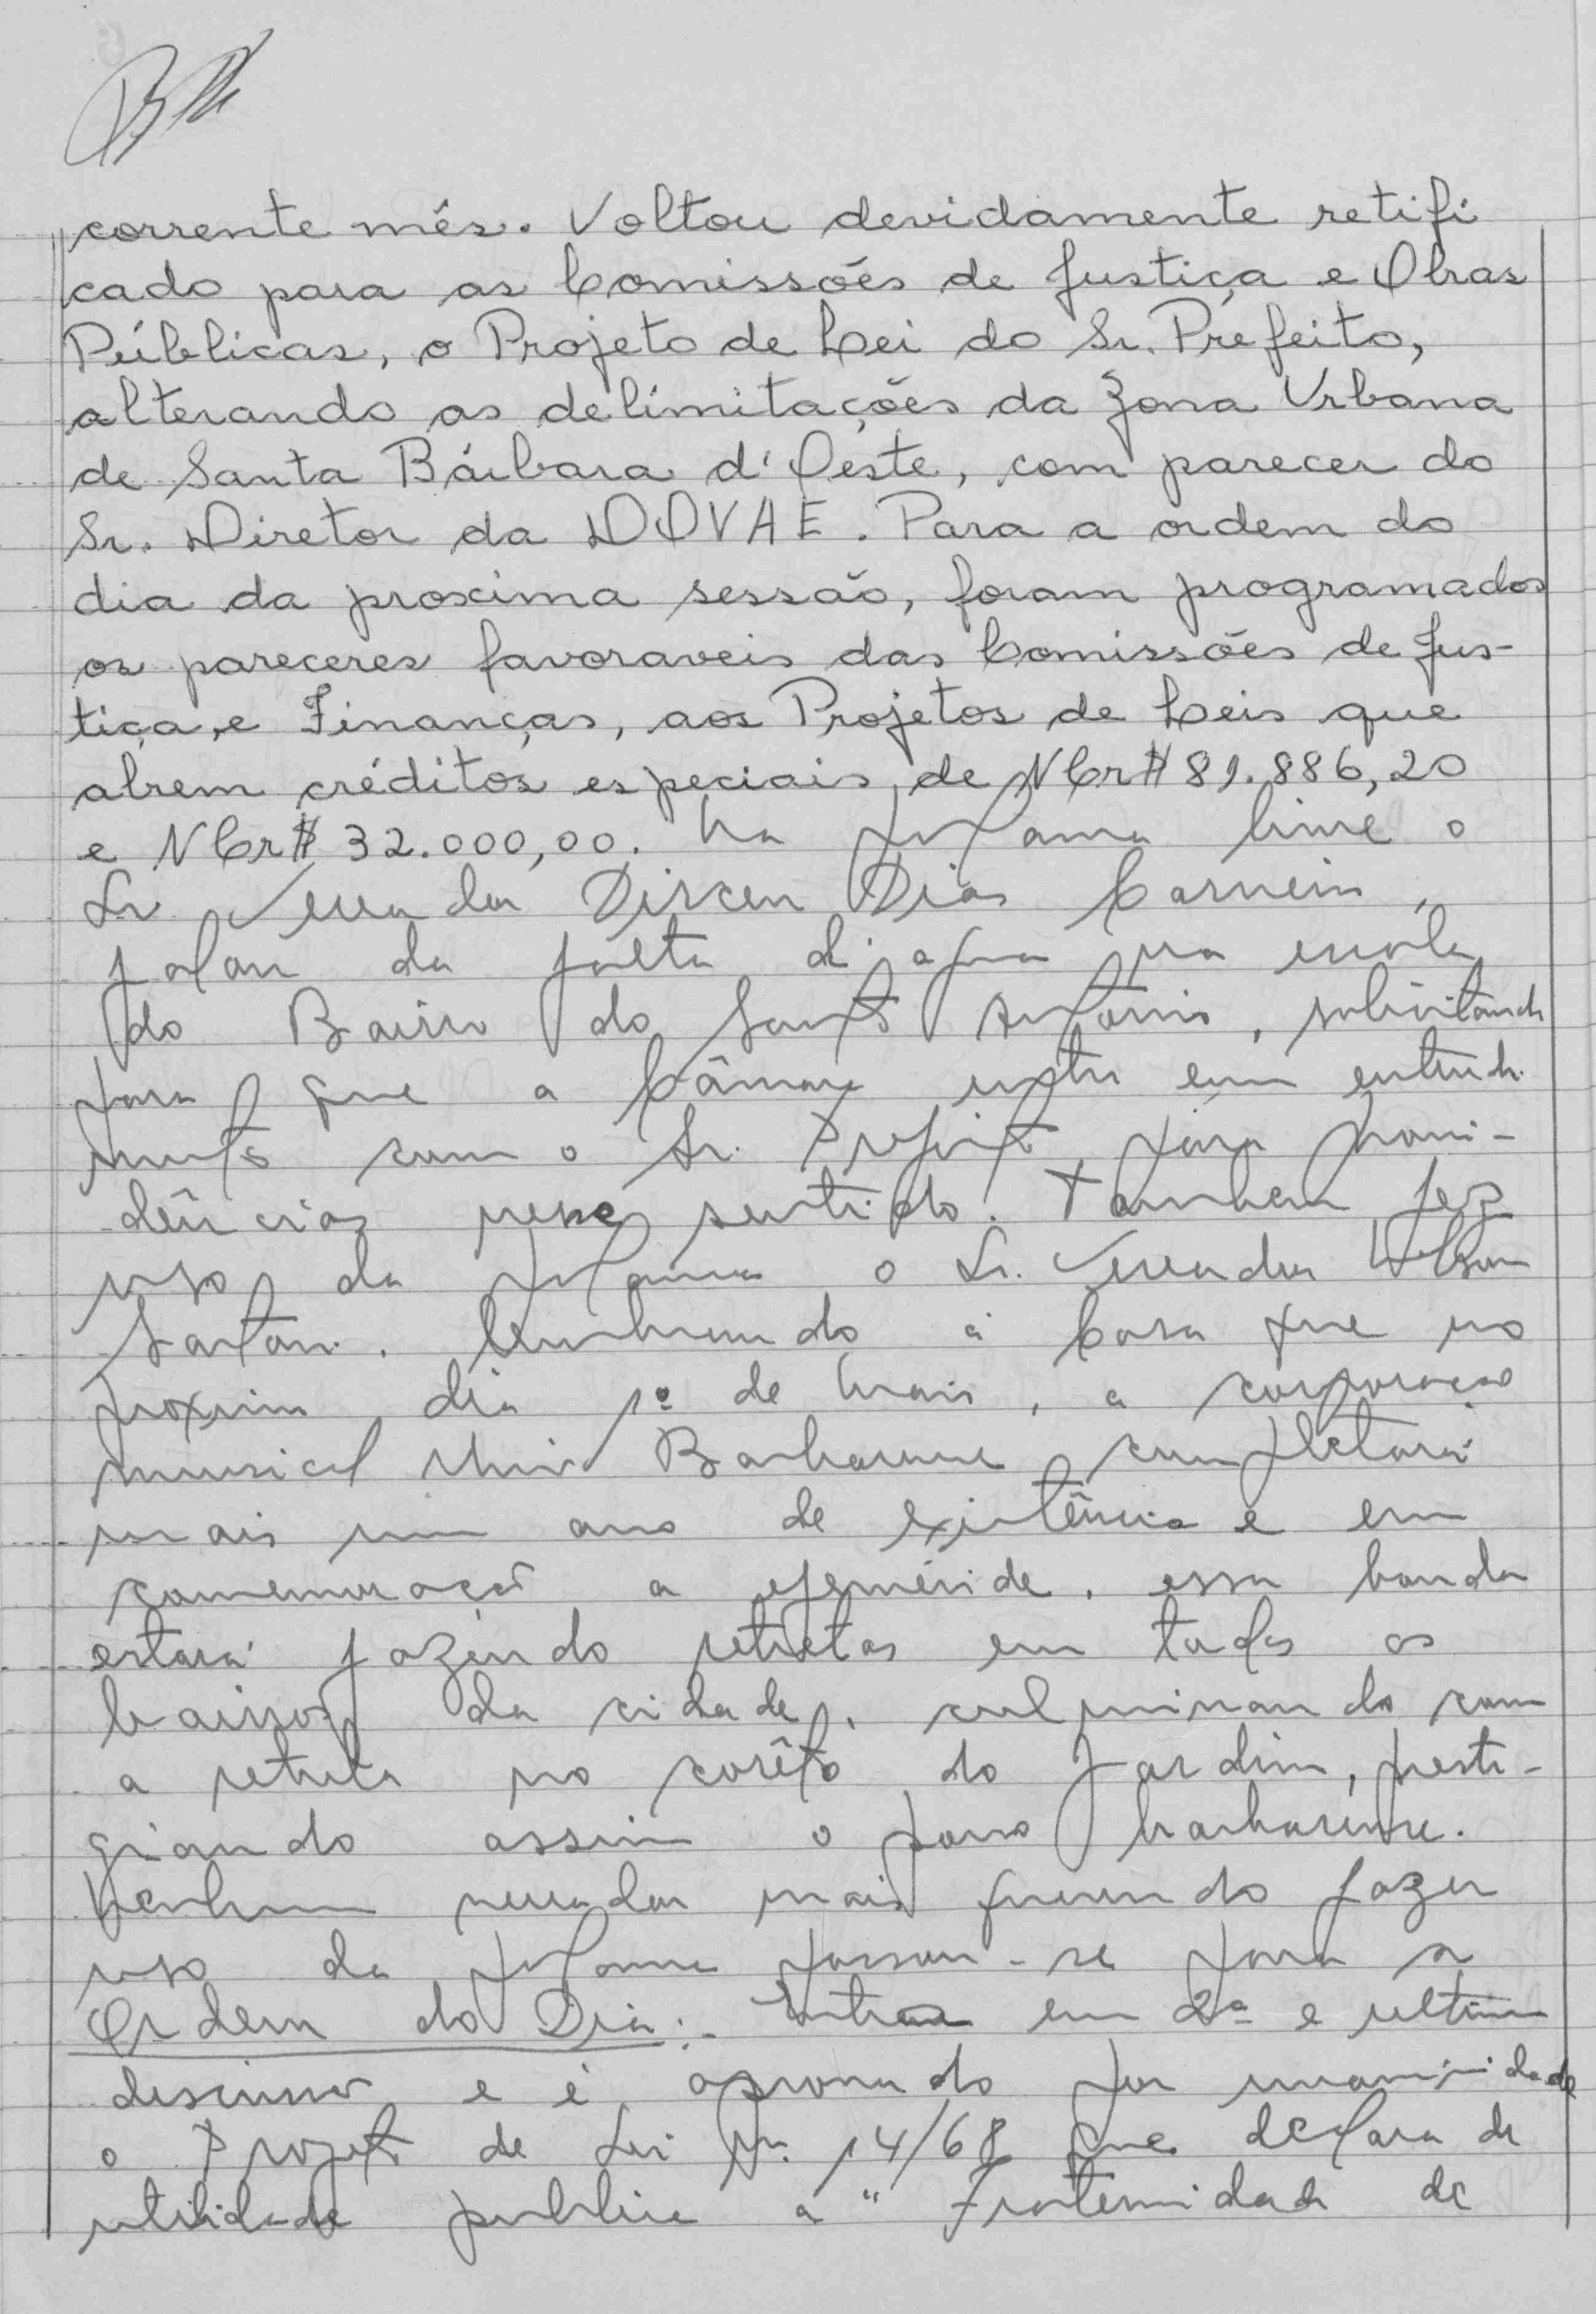 corrente mês. Voltou devidamente retifi
cado para as Comissões de Justiça e Obras
Públicas, o Projeto de Lei do Sr. Prefeito,
alterando as delimitações da Zona Urbana
de Santa Bárbara d'Oeste, com parecer do
Sr. Diretor da DOVAE. Para a ordem do
dia da proxima sessão, foram programados
os pareceres favoraveis das Comissões de Jus-
tiça, e Finanças, aos Projetos de Leis que
abrem créditos especiais, de NCr$ 81.886,20
e NCr$ 32.000,00. Na tribuna livre o
Sr Vereador Dirceu Dias Carneiro,
falou da falta d'agua na escola
do Bairro do Santo Antonio, solicitando
para que a Câmara entre em entendi
mento com o Sr. Prefeito para provi-
dências nesse sentido. Também fez
uso da tribuna o Sr. Vereador
Lembrando a Casa que no
proximo dia 1º de Maio, a corporação
musical União Barbarense completará
mais um ano de existência e em
comemoração a efeméride, essa banda
estará fazendo retretas em todos os
bairros da cidade, culminando com
a retreta no corêto do Jardim, presti-
giando assim o povo barbarense.
Nenhum vereador mais querendo fazer
uso da tribuna passou-se para a
Ordem do Dia:- Entra em 2ª e ultima
discussão e é aprovado por unanimidade
o Projeto de Lei Nº 14/68 que declara de
utilidade publica a "Fraternidade de